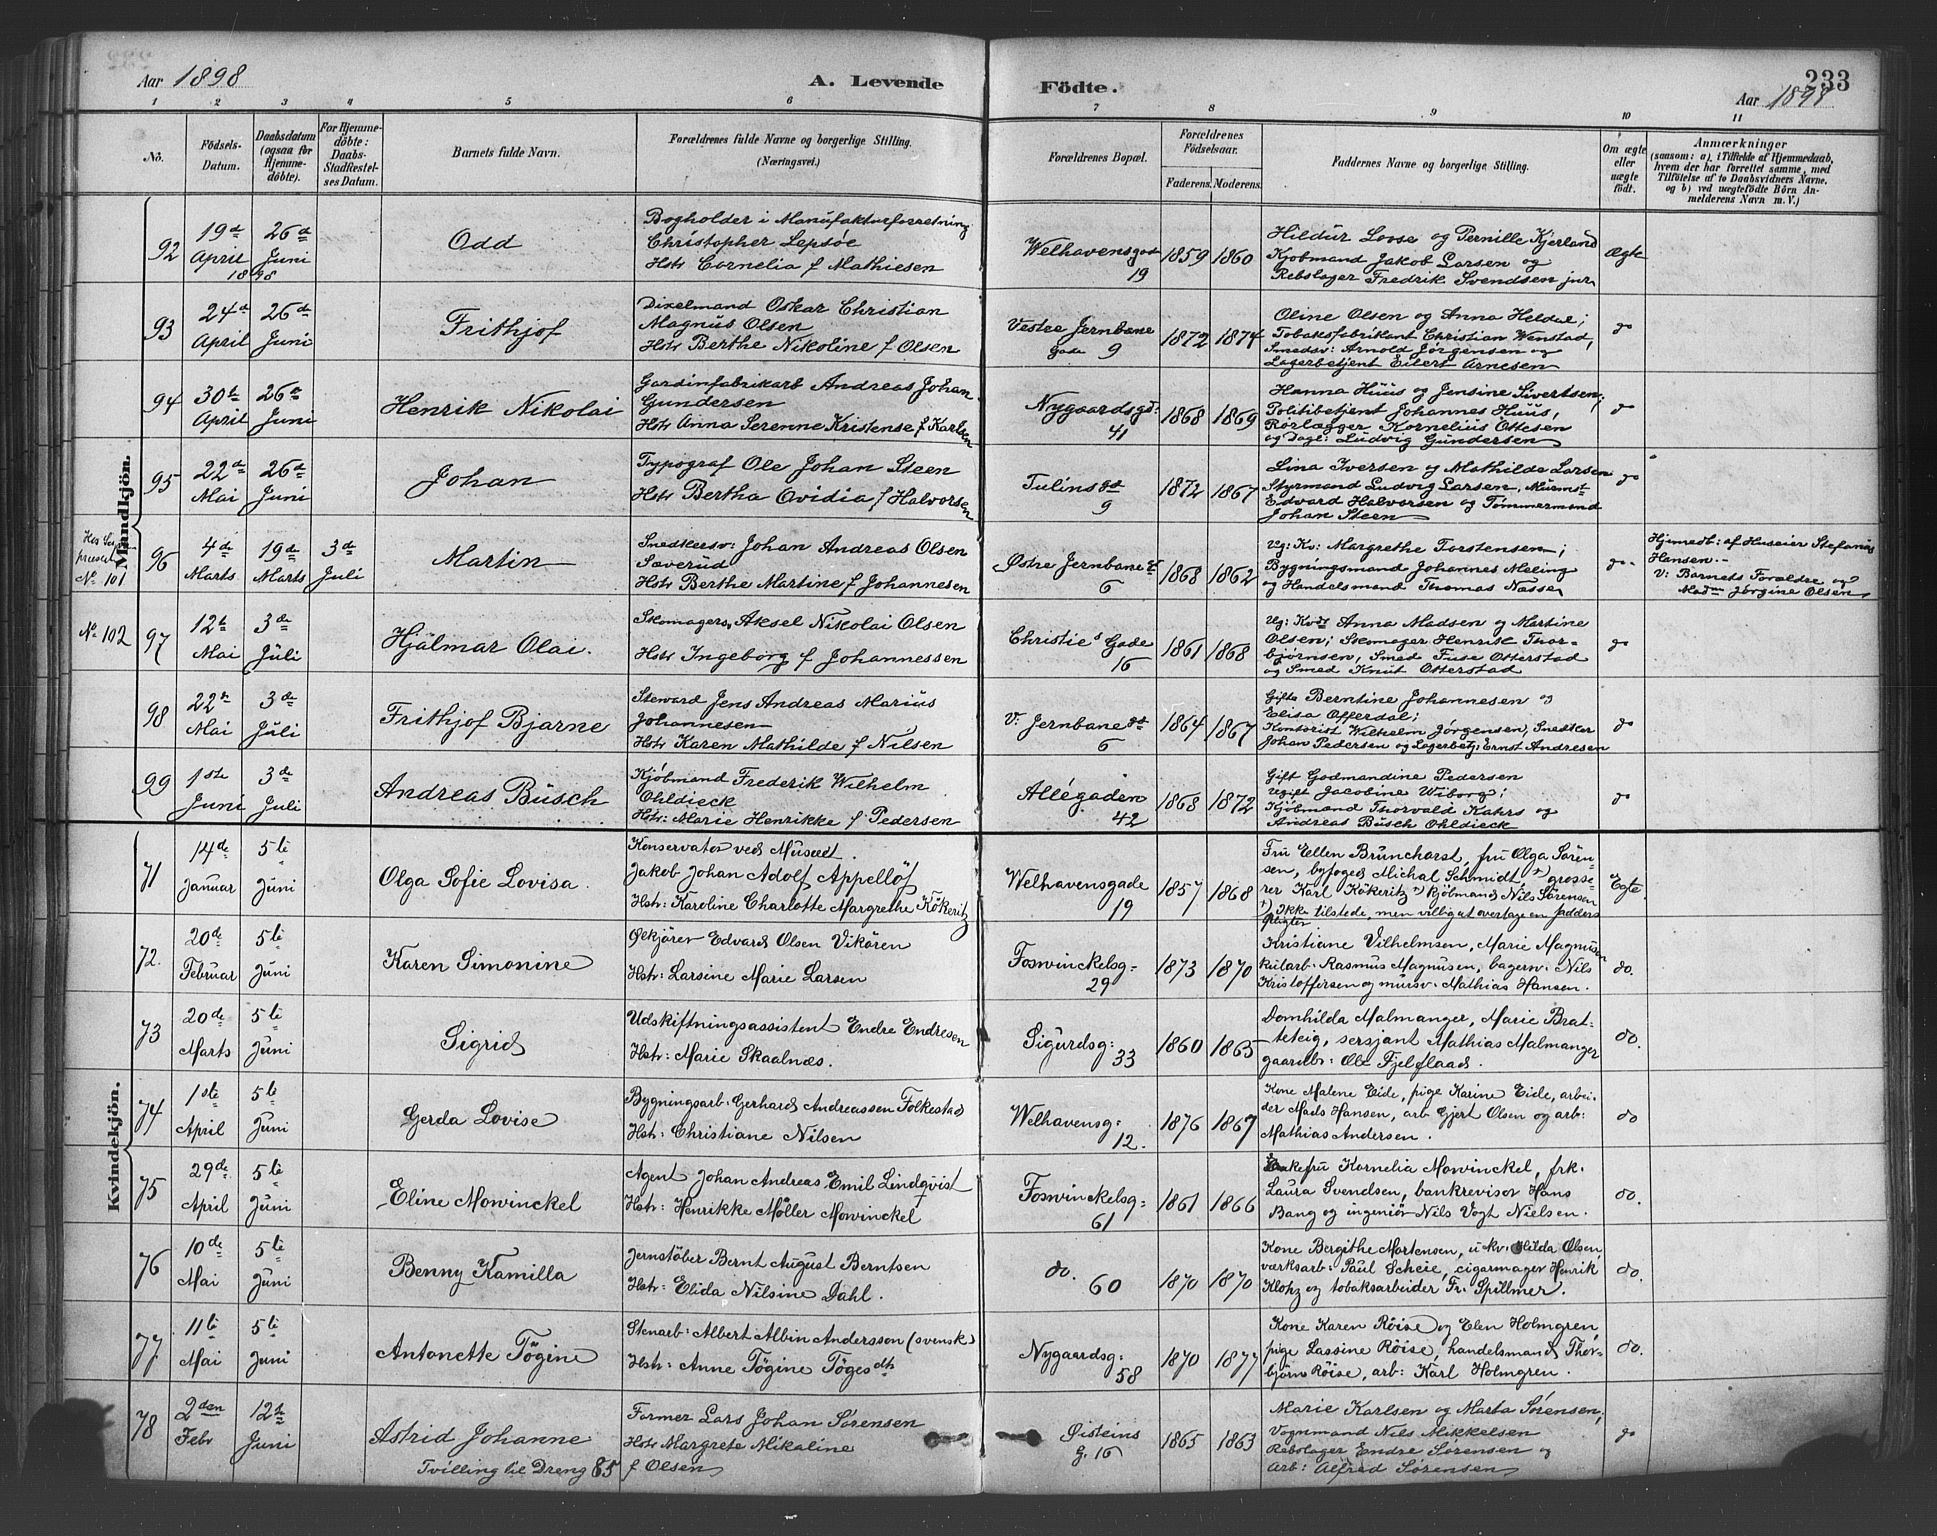 Aar 1898
A. Levende
Födte.
233
Aar 1898
1 2 3 4 5 6 7 8 9 10 11
No.
Födsels-
Datum.
Daabsdatum
(ogsaa for
Hjemme-
döbte).
For Hjemme-
döbte:
Daabs-
Stadfæstel-
ses Datum.
Barnets fulde Navn.
Forældrenes fulde Navne og borgerlige Stilling.
(Næringsvei.)
Forældrenes Bopæl.
Forældrenes
Födselsaar.
Faderens. Moderens.
Faddernes Navne og borgerlige Stilling.
Om ægte
eller
uægte
födt.
Anmærkninger
(saasom: a) i Tilfælde af Hjemmedaab,
hvem der har forrettet samme, med
Tilföielse af to Daabsvidners Navne,
og b) ved uægtefödte Börn An-
melderens Navn m. V.)
Mandkjön.
92
19de April 1898
26de Juni
Odd
Bogholder i Manufakturforretning
Christopher Lepsøe
Hstr Cornelia f Mathiesen
Welhavensgad
19
1859 1860
Hildur Loose og Pernille Kjerland
Kjøbmand Jakob Larsen og
Rebslager Fredrik Svendsen jur
Ægte
93
24de April
26de Juni
Frithjof
Dixelmand Oskar Christian
Magnus Olsen
Hstr Berthe Nikoline f Olsen
Vestre Jernbane
Gade 9
1872 1874
Oline Olsen og Anna Heldal;
Tobaksfabrikant Christian Wenstad,
Smedsv: Arnold Jørgensen og
Lagerbetjent Eilert Arnesen
do
94
30te April
26de Juni
Henrik Nikolai
Gardinfabrikarb Andreas Johan
Gundersen
Hstr Anna Serenne Kristense f Karlsen
Nygaardsgd:
41
1868 1869
Hanna Huus og Jensine Sivertsen;
Politibetjent Johannes Huus,
Rørlægger Kornelius Ottesen
og Dagl: Ludvig Gundersen
do
95
22de Mai
26de Juni
Johan
Typograf Ole Johan Steen
Hstr Bertha Ovidia f Halvorsen
Tulinsgd
9
1872 1867
Lina Iversen og Mathilde Larsen
Styrmand Ludvig Larsen, Murmst
Edvard Halvorsen og Tømmermand
Johan Steen
do
No 101
96
4de Marts
19de Marts
3de Juli
Martin
Snedkersv: Johan Andreas Olsen
Sæverud
Hstr Berthe Martine f Johannesen
Østre Jernbane gd
6
1868 1862
Ug: Kv: Margrethe Torstensen;
Bygningsmand Johannes Meling
og Handelsmand Thomas Nasse
do
Hjemedt: af Huseier Stefanus
Hansen.
V: Barnets Forældre og
Madm Jørgine Olsen
No 102
97
12te Mai
3de Juli
Hjalmar Olai.
Skomagers. Aksel Nikolai Olsen
Hstr Ingeborg f Johannessen
Christies Gade
16
1861 1868
Ug: Kvdr Anna Madsen og Martine
Olsen; Skomager Henrik Thor-
bjørnsen, Smed Tuse Otterstad
og Smed Knut Otterstad
do
98
22de Mai
3de Juli
Frithjof Bjarne
Steward Jens Andreas Marius
Johannesen
Hstr Karen Mathilde f Nilsen
V: Jernbanegd
6
1864 1867
Gifte Berntine Johannesen og
Elisa Offerdal;
Kontorist Wilhelm Jørgensen, Snedker
Johan Pedersen og Lagerbetj: Ernst Andresen
do
99
1ste Juni
3de Juli
Andreas Busch
Kjøbmand Frederik Wilhelm
Ohldieck
Hstr: Marie Henrikke f Pedersen
Allégaden
42
1868 1872
Gift Godmandine Pedersen
Ugift Jacobine Wiborg;
Kjøbmand Thorvald Kahrs og
Andreas Busch Ohldieck
do
Kvindekjön.
71
14de Januar
5te Juni
Olga Sofie Lovisa.
Konservator ved Museet.
Jakob Johan Adolf Appellöf
Hstr: Karoline Charlotte Margrethe Kökeritz
Welhavensgade
19
1857 1868
Fru Ellen Brunchorst, fru Olga Sören-
sen, byfoged Michal Schmidt, +) grosse-
rer Karl Kökeritz +) Kjöbmand Nils Sörensen
+) Ikke tilstede, men villig at overtage en fadders
pligter
Egte.
72.
20de Februar
5te Juni
Karen Simonine
Ølkjörer Edvard Olsen Vikören
Hstr: Larsine Marie Larsen
Fosvinckelsg-
29
1873 1870
Kristiane Vilhelmsen, Marie Magnusen
kularb. Rasmus Magnusen, bagersv. Nils
Kristoffersen og mursv. Mathias Hansen.
do.
73
20de Marts
5te Juni
Sigrid
Udskiftningsassistent Endre Endresen
Hstr: Marie Skaalnæs.
Sigurdsg:
33
1860 1865
Domhilda Malmanger, Marie Brat-
teteig, sersjant Mathias Malmanger
gaardbr: Ole Fjelflaad.
do.
74
1ste April
5te Juni
Gerda Lovise
Bygningsarb: Gerhard Andreassen Folkestad
Hstr: Christiane Nilsen
Welhavensg:
12.
1876 1867
Kone Malene Eide, pige Karine Eide, arbei-
der Mads Hansen, arb Gjert Olsen og arb:
Mathias Andersen.
do
75
29de April
5te Juni
Eline Mowinckel
Agent Johan Andreas Emil Lindqvist
Hstr: Henrikke Møller Mowinckel
Fosvinckelsg:
61
1861 1866
Enkefru Kornelia Mowinckel, frk.
Laura Svendsen, bankrevisor Hans
Bang og ingeniör Nils Vogt Nielsen.
do.
76
10de Mai
5te Juni
Benny Kamilla
Jernstöber Bernt August Berntsen
Hstr: Elida Nilsine Dahl.
do.
60
1870 1870
Kone Bergithe Mortensen, u kv: Hilda Olsen,
værksarb: Paul Scheie, cigarmager Henrik
Klohz og tobaksarbeider Fr. Spillmer.
do.
77
11te Mai
5te Juni
Antonette Tögine
Stenarb: Albert Albin Andersson (svensk)
Hstr: Anne Tögine Tögesdtr
Nygaardsg:
58
1870 1877
Kone Karen Röise og Elen Holmgren,
pige Lassine Röise, handelsmand Thor-
björn Röise, arb: Karl Holmgren.
do.
78
2den Febr
12te Juni
Astrid Johanne
Tvilling til Dreng 85
Former Lars Johan Sørensen
Hstr Margrete Mikaline
f Olsen
Øisteins
G. 16
1865 1863
Marie Karlsen og Marta Sørensen,
Vognmand Nils Mikkelsen
Rebslager Endre Sørensen og
Arb: Alfred Sørensen
do